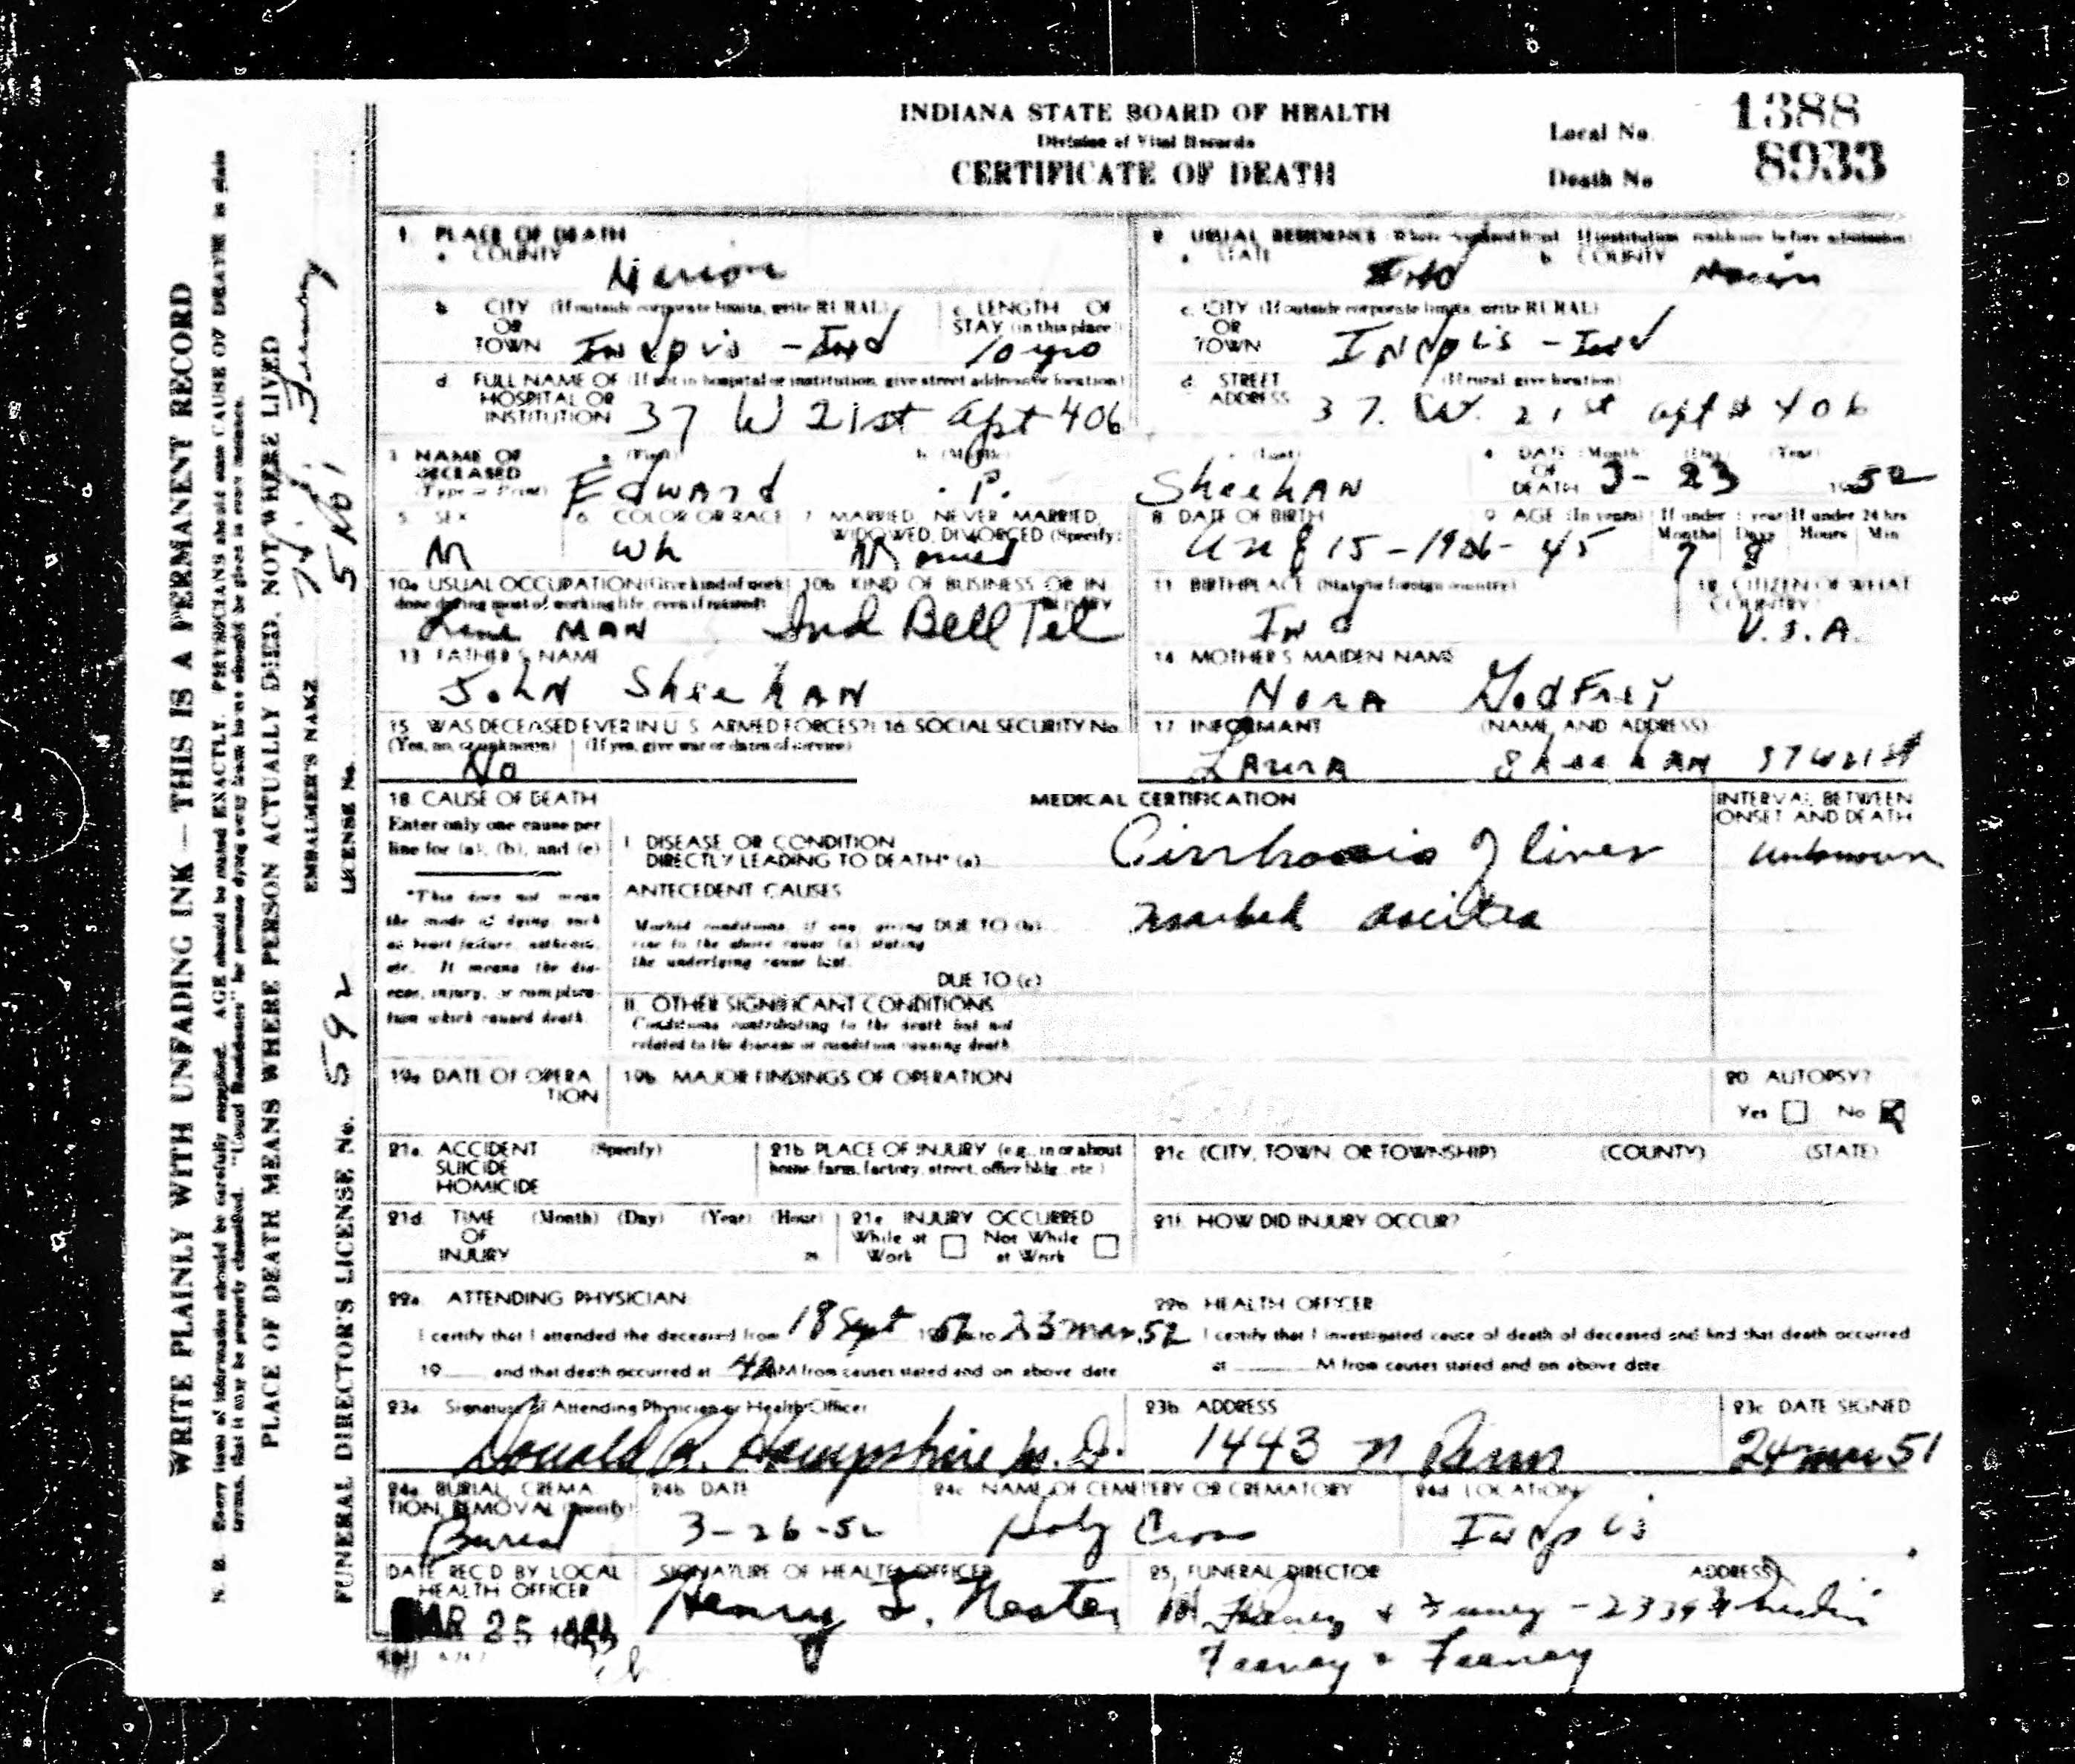 INDIANA STATE BOARD OF HEALTH
Division of Vital Records
CERTIFICATE OF DEATH
Local No. 1388
Death No 8933
1. PLACE OF DEATH
a COUNTY
Marion
2. USUAL RESIDENCE (Where deceased lived. If institution residence before admission)
a STATE Ind b. COUNTY Marion
b CITY (If outside corporate limits, write RURAL)
OR
TOWN Indpls - Ind
c. LENGTH OF
STAY (in this place)
10 yrs
c. CITY (If outside corporate limits, write RURAL)
OR
TOWN Indpls - Ind
d FULL NAME OF (If not in hospital or institution, give street address or location)
HOSPITAL OR
INSTITUTION 37 W 21st apt 406
d. STREET (If rural, give location)
ADDRESS 37. W. 21st apt # 406
3 NAME OF a (First) b. (Middle) c (Last)
DECEASED
(Type or Print) Edward . P. Sheehan
4 DATE (Month) (Day) (Year)
OF
DEATH 3 - 23 1952
5. SEX
M
6. COLOR OR RACE
Wh
7 MARRIED, NEVER MARRIED,
WIDOWED, DIVORCED (Specify)
8 DATE OF BIRTH
Aug 15 - 1906 -
9 AGE (In years) If under 1 year If under 24 hrs
Months Days Hours Min
45 7 8
10a USUAL OCCUPATION (Give kind of work
done during most of working life, even if retired)
Line man
10b. KIND OF BUSINESS OR IN
DUSTRY
Ind Bell Tel
11 BIRTHPLACE (State or foreign country)
Ind
12 CITIZEN OF WHAT
COUNTRY?
U.S.A.
13 FATHER'S NAME
John Sheehan
14 MOTHER'S MAIDEN NAME
Nora Godfrey
15 WAS DECEASED EVER IN U.S. ARMED FORCES?
(Yes, no, or unknown) (If yes, give war or dates of service)
No
16 SOCIAL SECURITY No.
17 INFORMANT (NAME AND ADDRESS)
Laura Sheehan 37 W 21st
18 CAUSE OF DEATH
Enter only one cause per
line for (a), (b), and (c)
*This does not mean
the mode of dying, such
as heart failure, asthenia,
etc. It means the dis-
ease, injury, or complica-
tion which caused death.
MEDICAL CERTIFICATION
I DISEASE OR CONDITION
DIRECTLY LEADING TO DEATH* (a) Cirrhosis of liver
ANTECEDENT CAUSES
Morbid conditions, if any, giving DUE TO (b) marked ascites
rise to the above cause (a) stating
the underlying cause last.
DUE TO (c)
II. OTHER SIGNIFICANT CONDITIONS
Conditions contributing to the death but not
related to the disease or condition causing death.
INTERVAL BETWEEN
ONSET AND DEATH
unknown
19a DATE OF OPERA
TION
19b. MAJOR FINDINGS OF OPERATION
20 AUTOPSY?
Yes No X
21a. ACCIDENT (Specify)
SUICIDE
HOMICIDE
21b PLACE OF INJURY (e.g., in or about
home, farm, factory, street, office bldg., etc.)
21c (CITY, TOWN OR TOWNSHIP) (COUNTY) (STATE)
21d. TIME (Month) (Day) (Year) (Hour)
OF
INJURY m.
21e INJURY OCCURRED
While at Not While
Work at Work
21f. HOW DID INJURY OCCUR?
22a. ATTENDING PHYSICIAN
I certify that I attended the deceased from 18 Sept 1952 to 23 mar. 52
19 and that death occurred at 4 AM from causes stated and on above date
22b HEALTH OFFICER
I certify that I investigated cause of death of deceased and find that death occurred
at M from causes stated and on above date
23a Signature of Attending Physician or Health Officer
Donald R. Hampshire M.D.
23b ADDRESS
1443 N Penn
23c DATE SIGNED
24 mar 51
24a BURIAL, CREMA
TION, REMOVAL (Specify)
Burial
24b DATE
3-26-52
24c NAME OF CEMETERY OR CREMATORY
Holy Cross
24d LOCATION
Indpls
DATE REC'D BY LOCAL
HEALTH OFFICER
MAR 25
SIGNATURE OF HEALTH OFFICER
Henry G. Nester
25. FUNERAL DIRECTOR ADDRESS
Feeney & Feeney - 2339
Feeney & Feeney
WRITE PLAINLY WITH UNFADING INK — THIS IS A PERMANENT RECORD
N. B. Every item of information should be carefully supplied. AGE should be stated EXACTLY. PHYSICIANS should state CAUSE OF DEATH in plain
terms, that it may be properly classified. "Usual Residence" for persons dying away from home should be given in every instance.
PLACE OF DEATH MEANS WHERE PERSON ACTUALLY DIED, NOT WHERE LIVED
EMBALMER'S NAME Feeney
FUNERAL DIRECTOR'S LICENSE No. 592
LICENSE No.